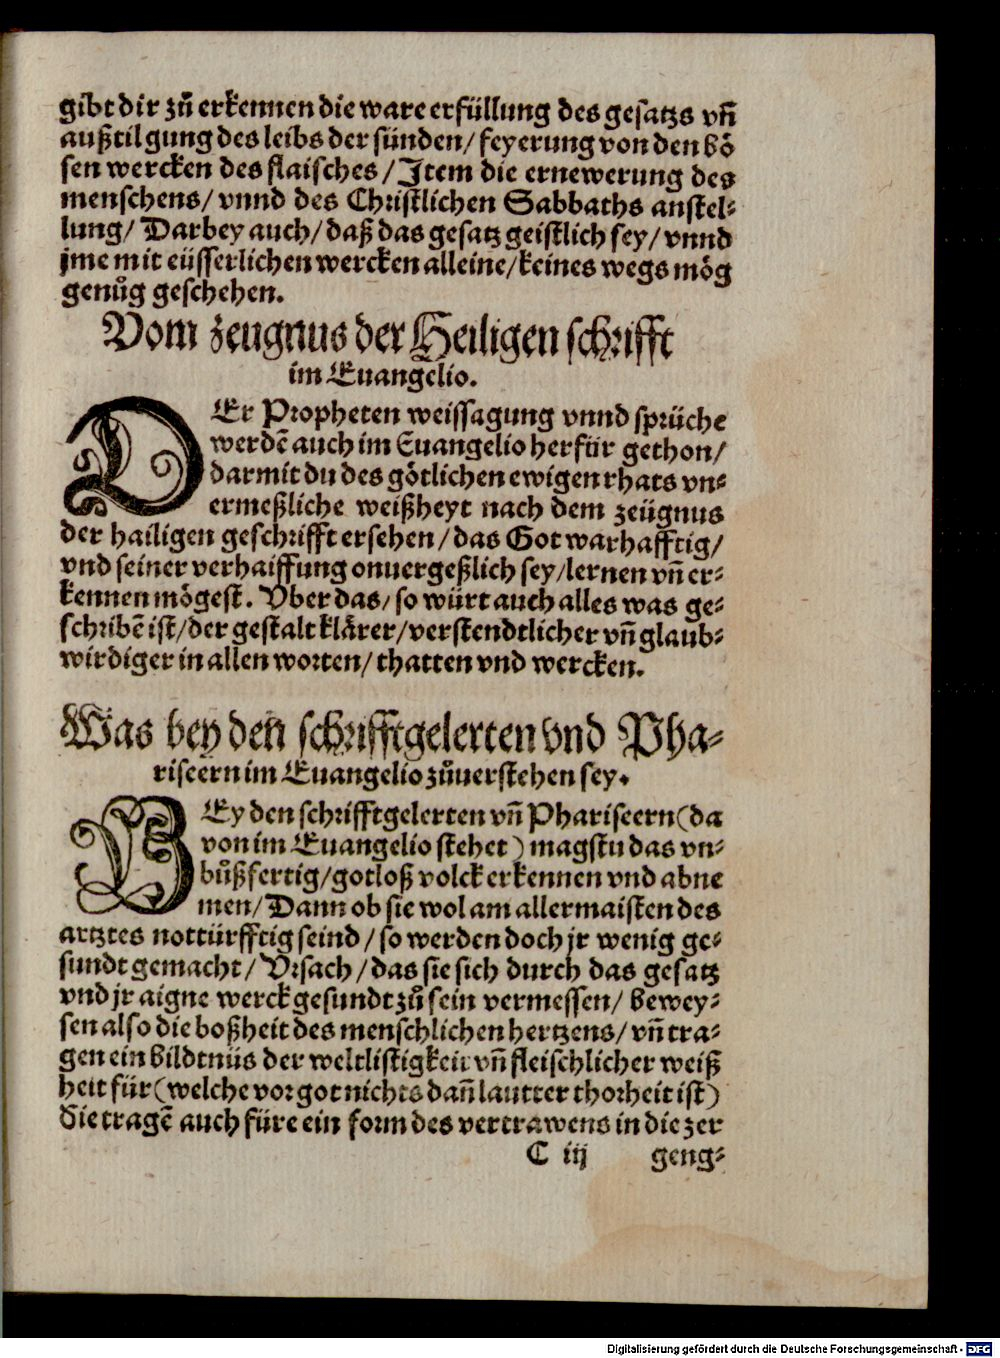 gibt dir zů erkennen die ware erfüllung des gesatzs vñ
außtilgung des leibs der sünden/ feyerung von den bö
sen wercken des flaisches/ Item die ernewerung des
menschens/ vnnd des Christlichen Sabbaths anstel⸗
lung/ Darbey auch/ daß das gesatz geistlich sey/ vnnd
jme mit eüsserlichen wercken alleine/ keines wegs mög
genůg geschehen.
Vom zeugnus der Heiligen schrifft
im Euangelio.
DEr Propheten weissagung vnnd sprüche
werdē auch im Euangelio herfür gethon/
darmit du des götlichen ewigen rhats vn⸗
ermeßliche weißheyt nach dem zeügnus
der hailigen geschrifft ersehen/ das Got warhafftig/
vnd seiner verhaissung onuergeßlich sey/ lernen vñ er⸗
kennen mögest. Vber das/ so würt auch alles was ge⸗
schribē ist/ der gestalt klärer/ verstendtlicher vñ glaub⸗
wirdiger in allen worten/ thatten vnd wercken.
Was bey den schrifftgelerten vnd Pha⸗
riseern im Euangelio zůuerstehen sey.
BEy den schrifftgelerten vñ Phariseern (da
von im Euangelio stehet) magstu das vn⸗
bůßfertig/ gotloß volck erkennen vnd abne
men/ Dann ob sie wol am allermaisten des
artztes nottürfftig seind/ so werden doch jr wenig ge⸗
sundt gemacht/ Vrsach/ das sie sich durch das gesatz
vnd jr aigne werck gesundt zů sein vermessen/ bewey⸗
sen also die boßheit des menschlichen hertzens/ vñ tra⸗
gen ein bildtnüs der weltlistigkeit vñ fleischlicher weiß
heit für (welche vor got nichts dañ lautter thorheit ist)
Sie tragē auch füre ein form des vertrawens in die zer
C iij geng⸗
Digitalisierung gefördert durch die Deutsche Forschungsgemeinschaft - DFG